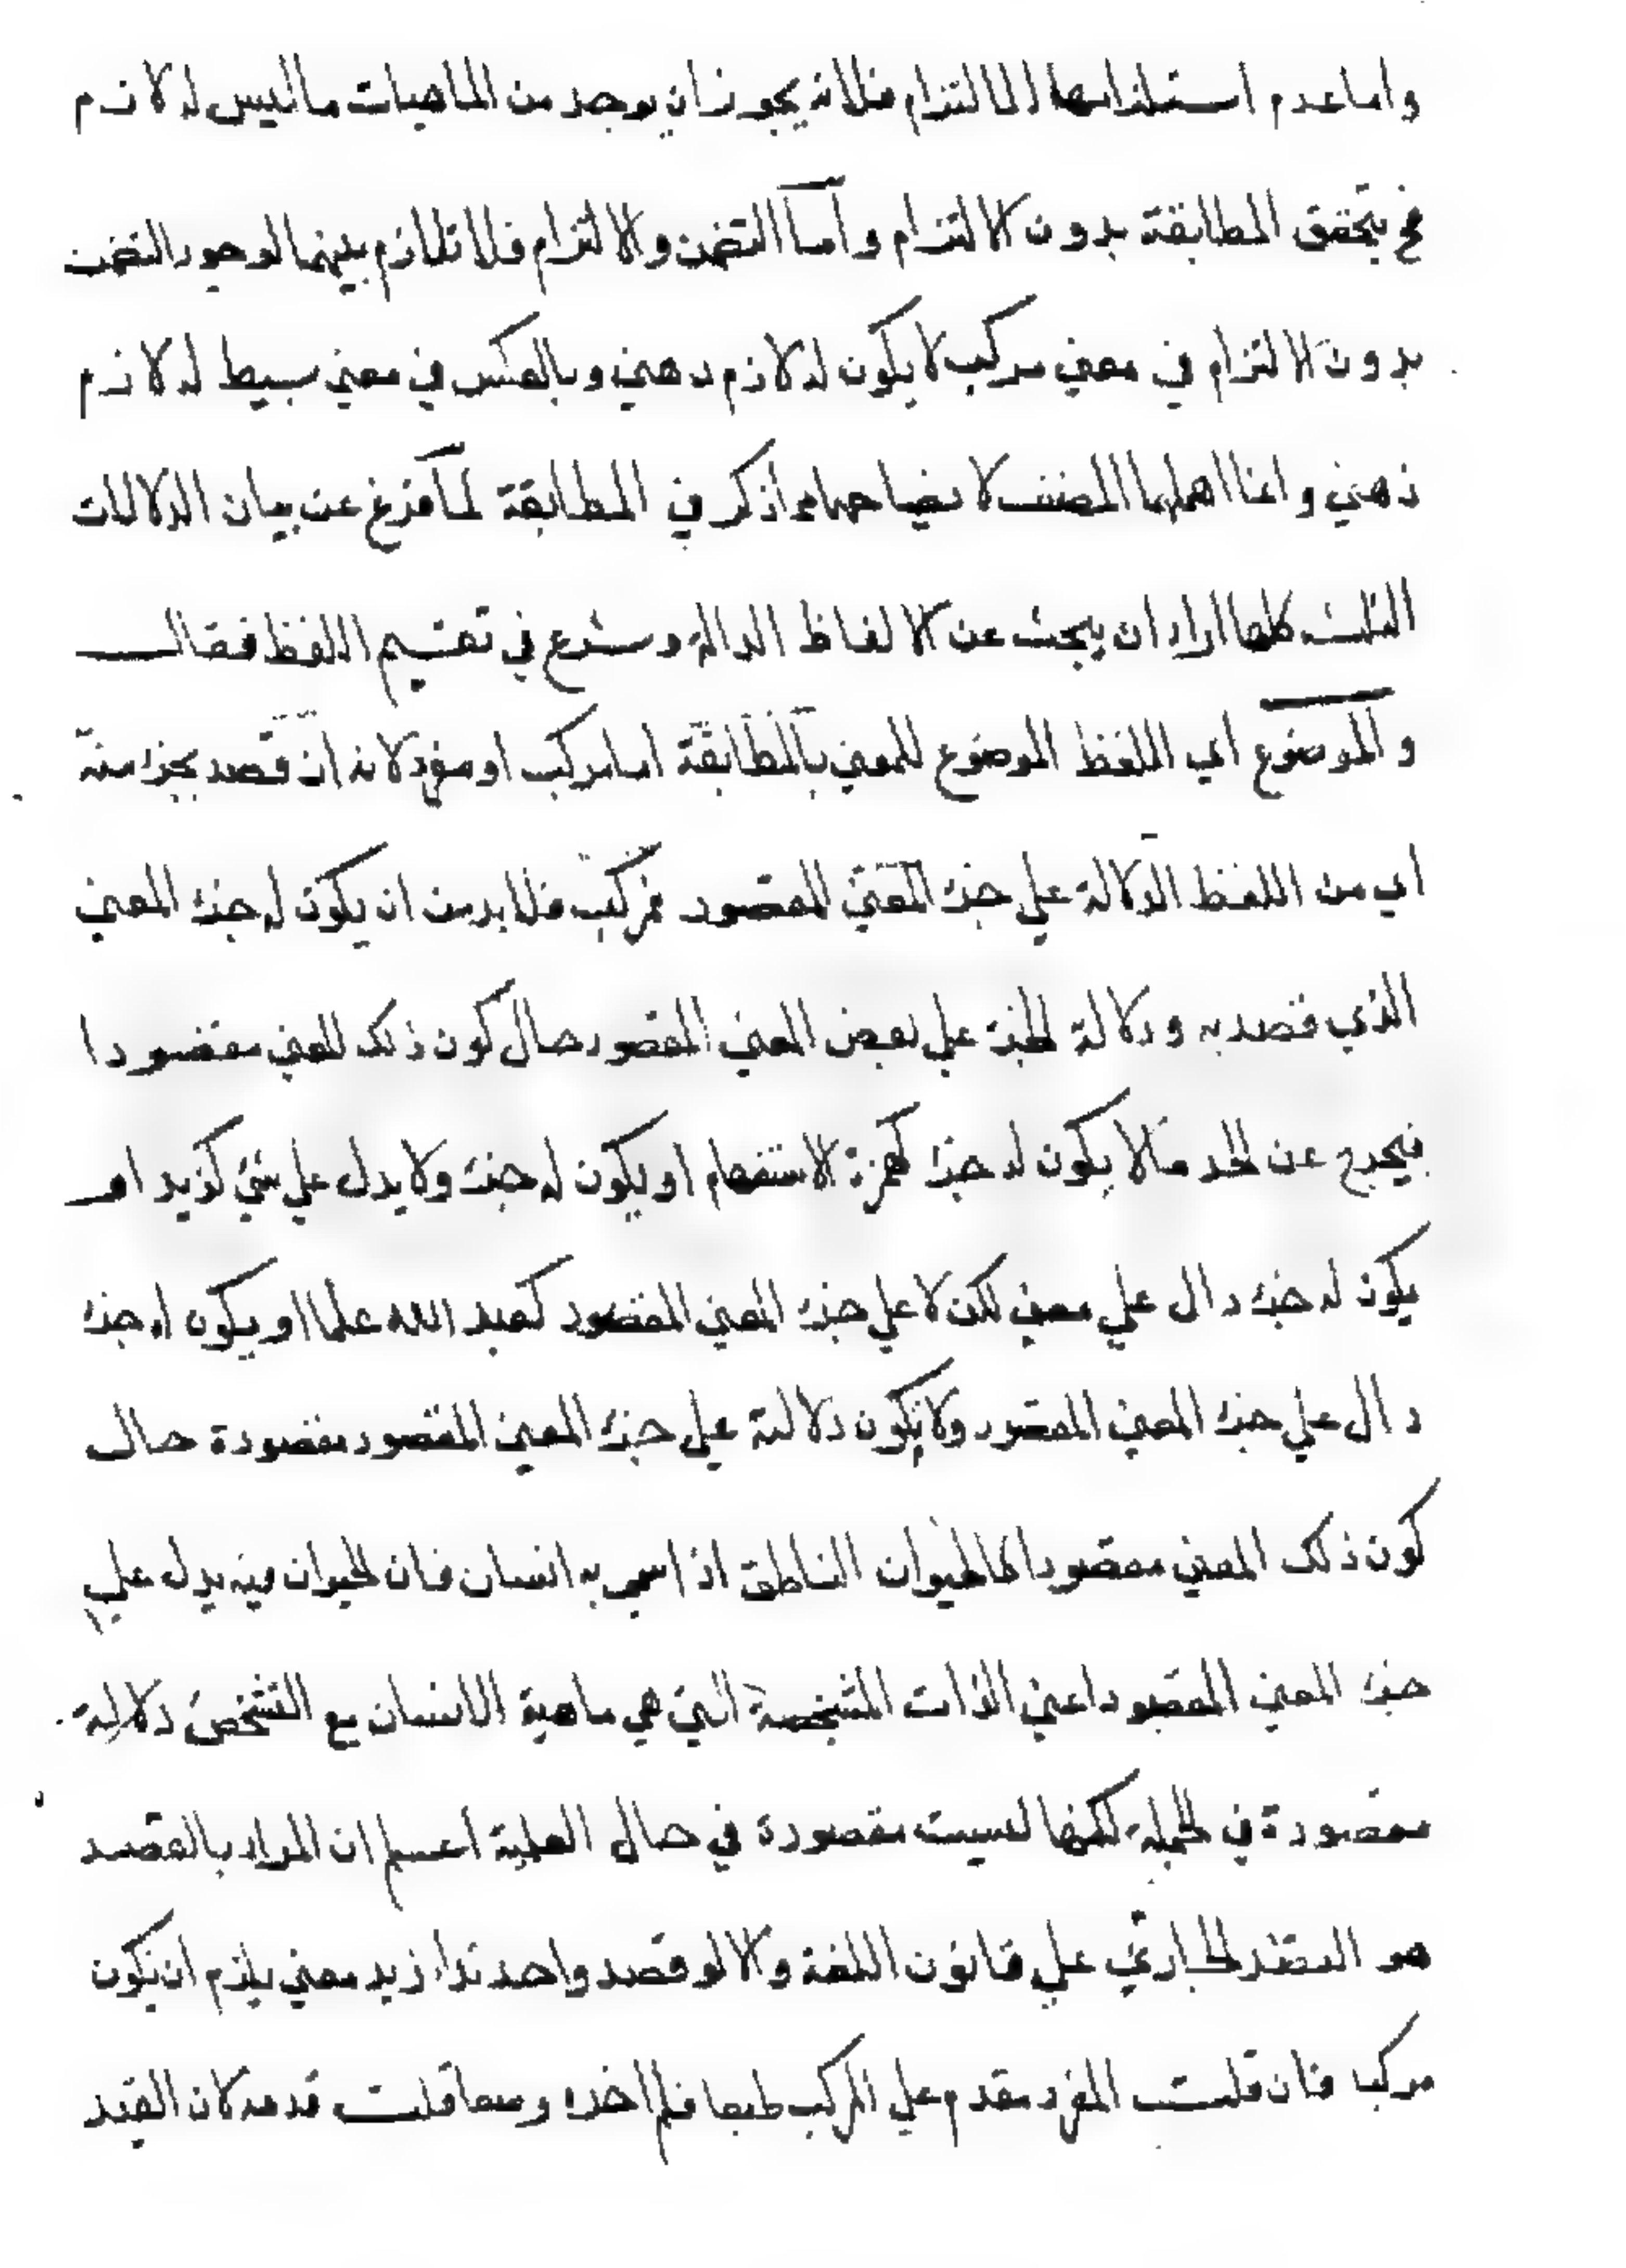 واما عدم استلزامها الالتزام فلانه يجوز ان يوجد من الماهيات ماليس له لازم
فح يتحقق المطابقة بدون الالتزام واما التضمن والالتزام فلا تلازم بينهما لوجود التضمن
بدون الالتزام في معني مركب لايكون له لازم ذهني وبالعكس في معني بسيط له لازم
ذهني وانما اهملها المصنف لانضياحهما اذكر في المطابقة لما فرغ عن بيان الدلالات
الثلث كلها اراد ان يبحث عن الالفاظ الدالة وشرع في تقسيم اللفظ فقال
والموضوع اي اللفظ الموضوع للمعني بالمطابقة اما مركب او مفرد لانه ان قصد بجزء منه
اي من اللفظ الدلالة علي جزء المعني المقصود فمركب فلا بد من ان يكون له جزء المعني
الذي قصد به ودلالة الجزء علي بعض المعني المقصود حال كون ذلك المعني مقصودا
فيخرج عن الحد مالا يكون له جزء كهمزة الاستفهام او يكون له جزء ولا يدل علي شئ كزيد او
يكون له جزء دال علي معني لكن لا علي جزء المعني المقصود كعبد الله علما او يكون له جزء
دال علي جزء المعني المقصود ولا يكون دلالته علي جزء المعني المقصود مقصودة حال
كون ذلك المعني مقصودا كالحيوان الناطق اذا سمي به انسان فان الحيوان فيه يدل علي
جزء المعني المقصود اعني الذات المشخصة التي هي ماهية الانسان مع التشخص دلالة
مقصودة في الجملة لكنها ليست مقصودة في حال العلمية اعلم ان المراد بالقصد
هو القصد الجاري علي قانون اللغة والا لو قصد واحد بزا زيد معني يلزم ان يكون
مركبا فان قلت المفرد مقدم علي المركب طبعا فلم اخره وضعا قلت قدمه لان القيد